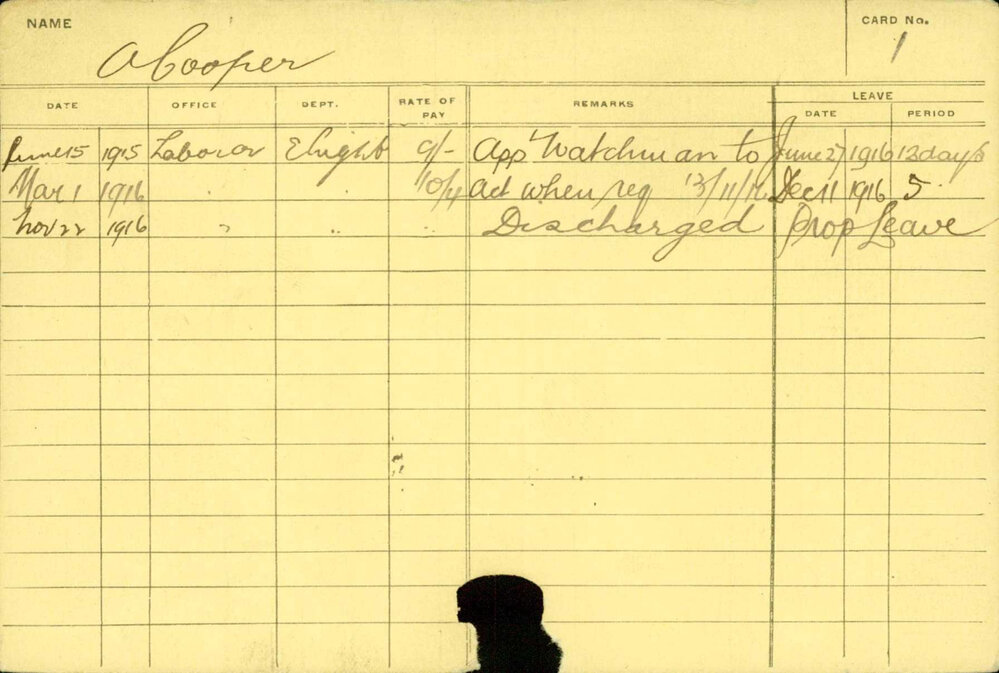 NAME
CARD No.
1
A Cooper
DATE OFFICE DEPT. RATE OF PAY REMARKS LEAVE
DATE PERIOD
June 15 1915 Laborer Elright 9/- App Watchman to June 27 1916 13 days
Mar 1 1916 " " 10/4 act when req 13/11/16 Dec 11 1916 5
Nov 22 1916 " " " Discharged Prop Leave